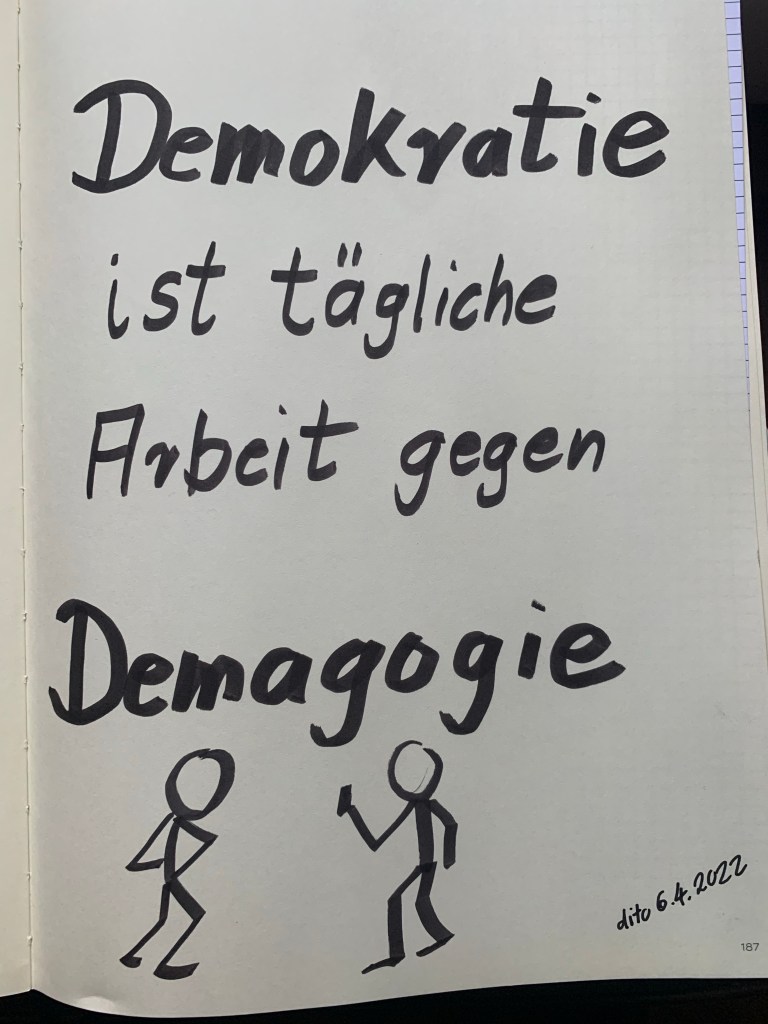 Demokratie
ist tägliche
Arbeit gegen
Demagogie
dito 6.4.2022
187